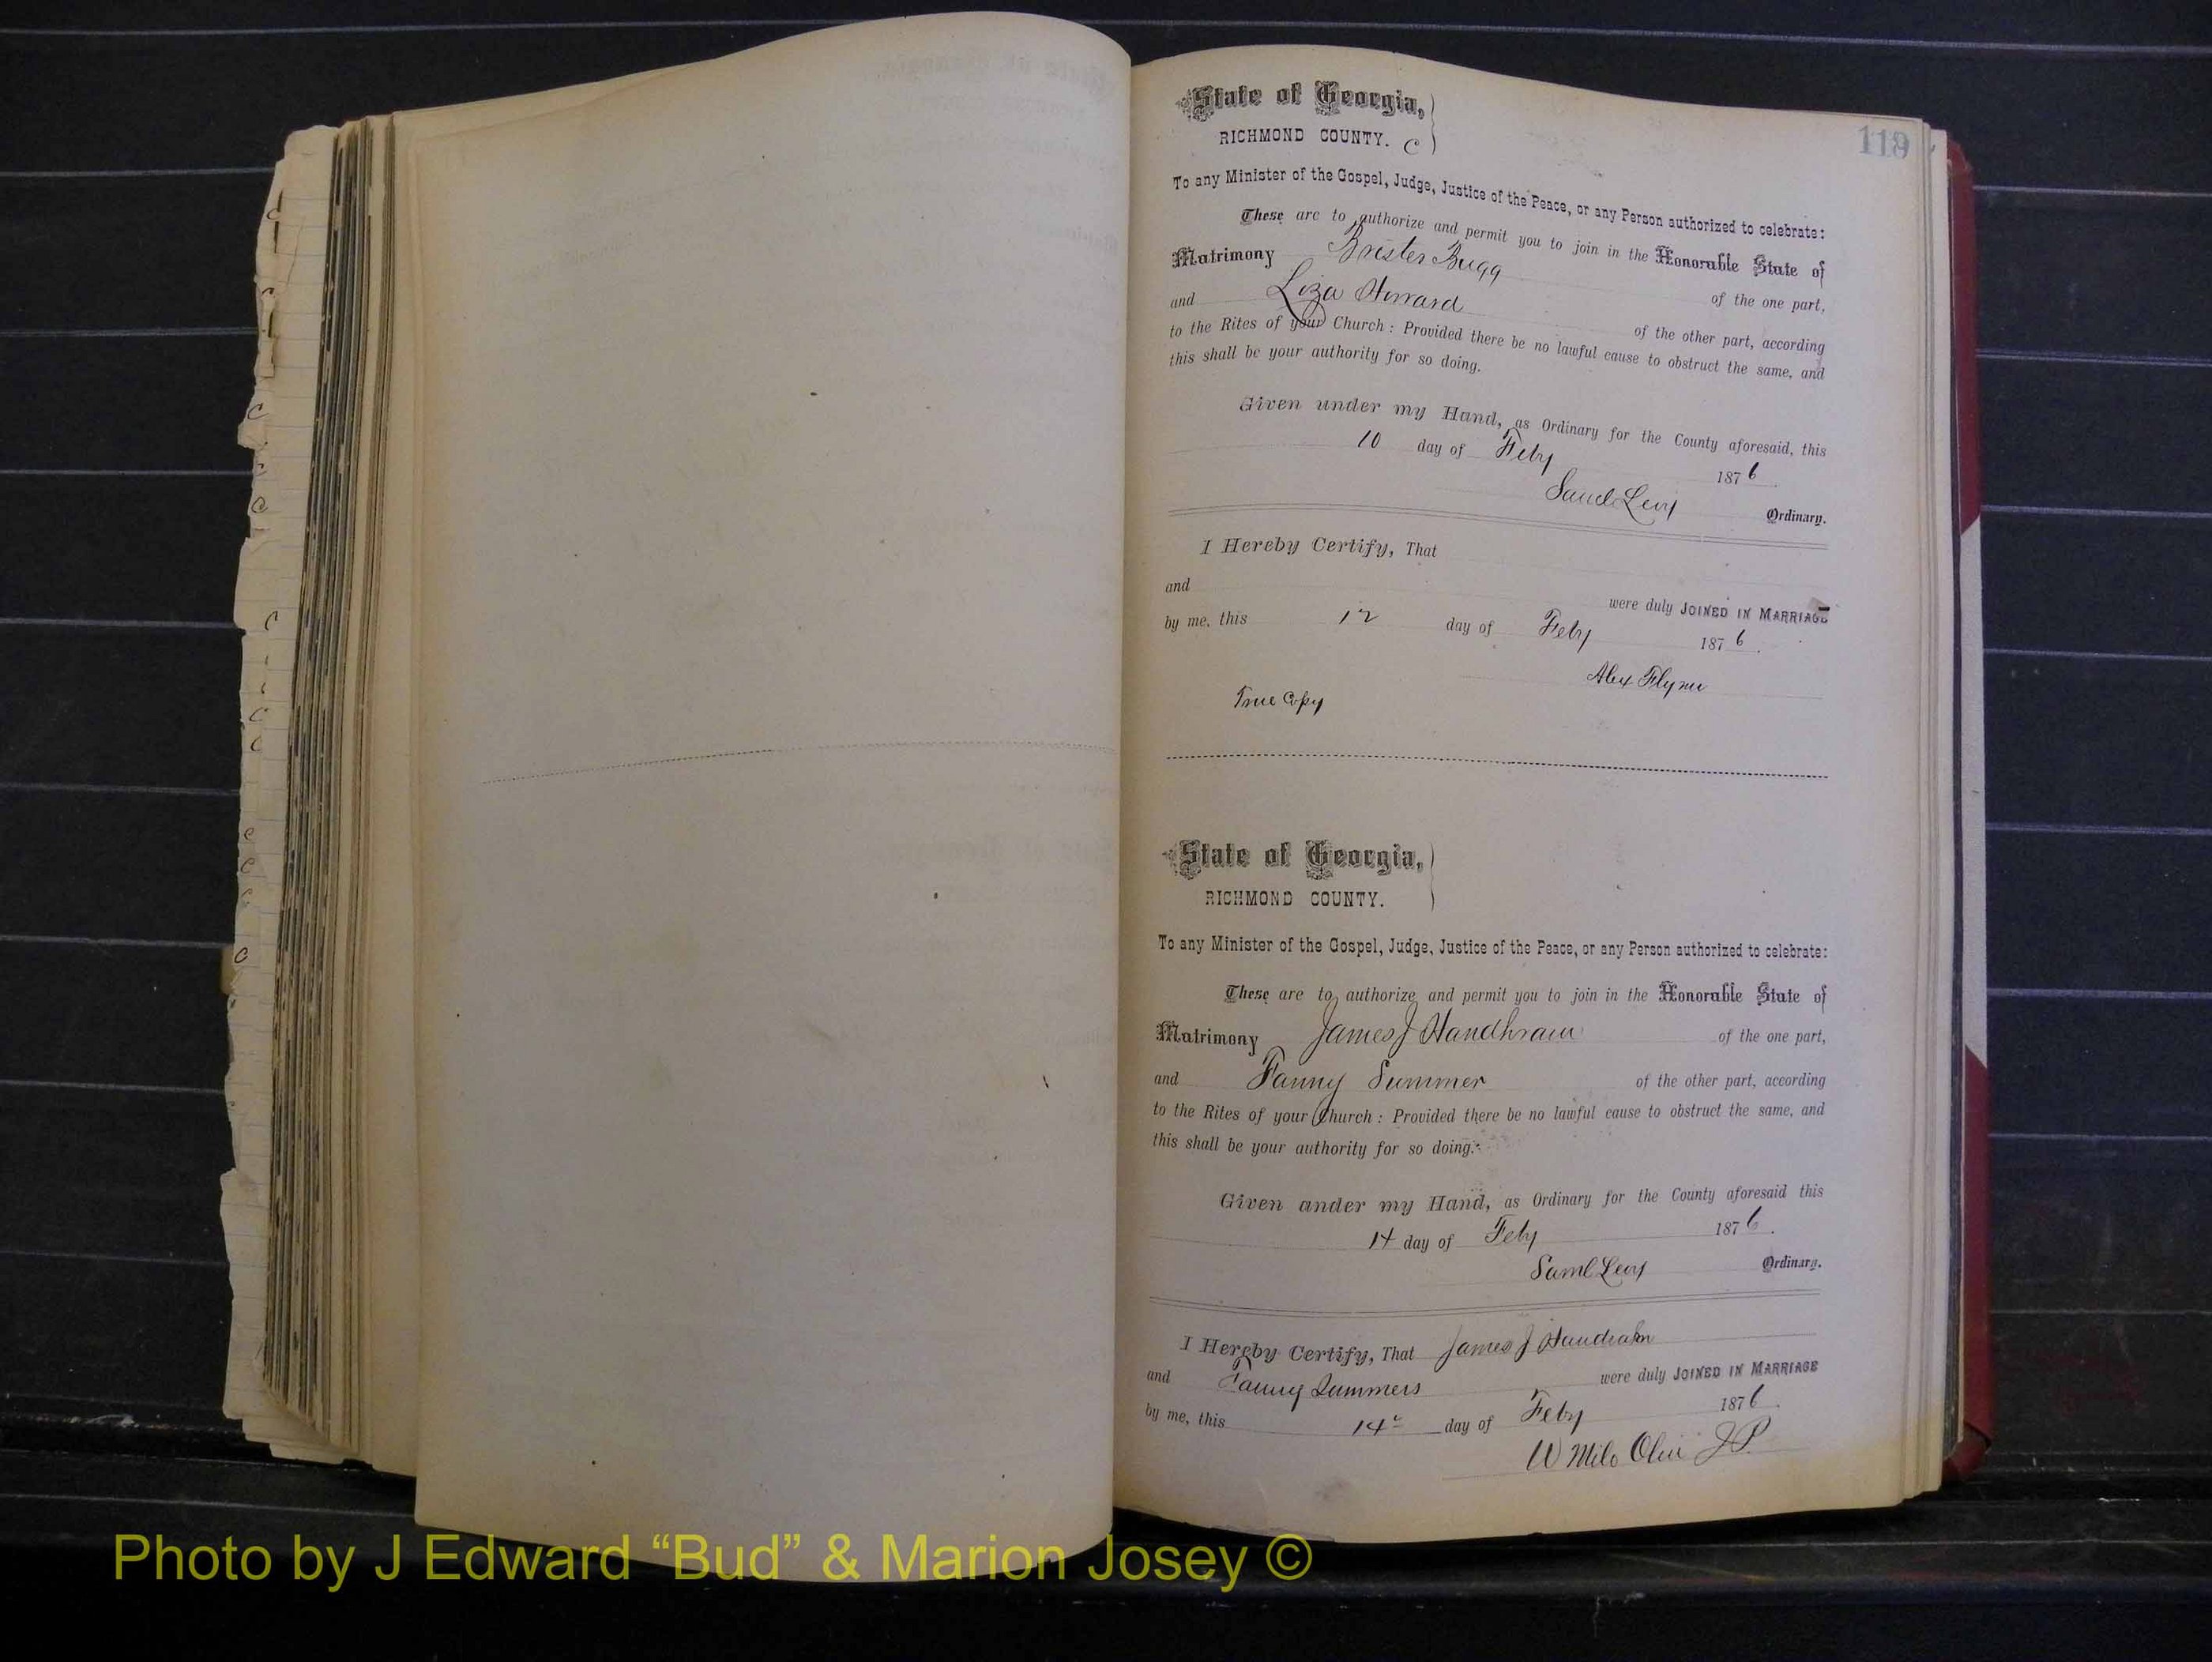 119
State of Georgia,
RICHMOND COUNTY. C
To any Minister of the Gospel, Judge, Justice of the Peace, or any Person authorized to celebrate:
These are to authorize and permit you to join in the Honorable State of
Matrimony Brister Bugg of the one part,
and Liza Howard of the other part, according
to the Rites of your Church: Provided there be no lawful cause to obstruct the same, and
this shall be your authority for so doing.
Given under my Hand, as Ordinary for the County aforesaid, this
10 day of Feby 1876.
Saml Levy Ordinary.
I Hereby Certify, That
and were duly JOINED IN MARRIAGE
by me, this 12 day of Feby 1876.
Alex Flynn
True Copy
State of Georgia,
RICHMOND COUNTY.
To any Minister of the Gospel, Judge, Justice of the Peace, or any Person authorized to celebrate:
These are to authorize and permit you to join in the Honorable State of
Matrimony James J Handhram of the one part,
and Fanny Summer of the other part, according
to the Rites of your Church: Provided there be no lawful cause to obstruct the same, and
this shall be your authority for so doing.
Given under my Hand, as Ordinary for the County aforesaid this
14 day of Feby 1876.
Saml Levy Ordinary.
I Hereby Certify, That James J
and Fanny Summers were duly JOINED IN MARRIAGE
by me, this 14 day of Feby 1876.
W Milo Olin J P
Photo by J Edward “Bud” & Marion Josey ©